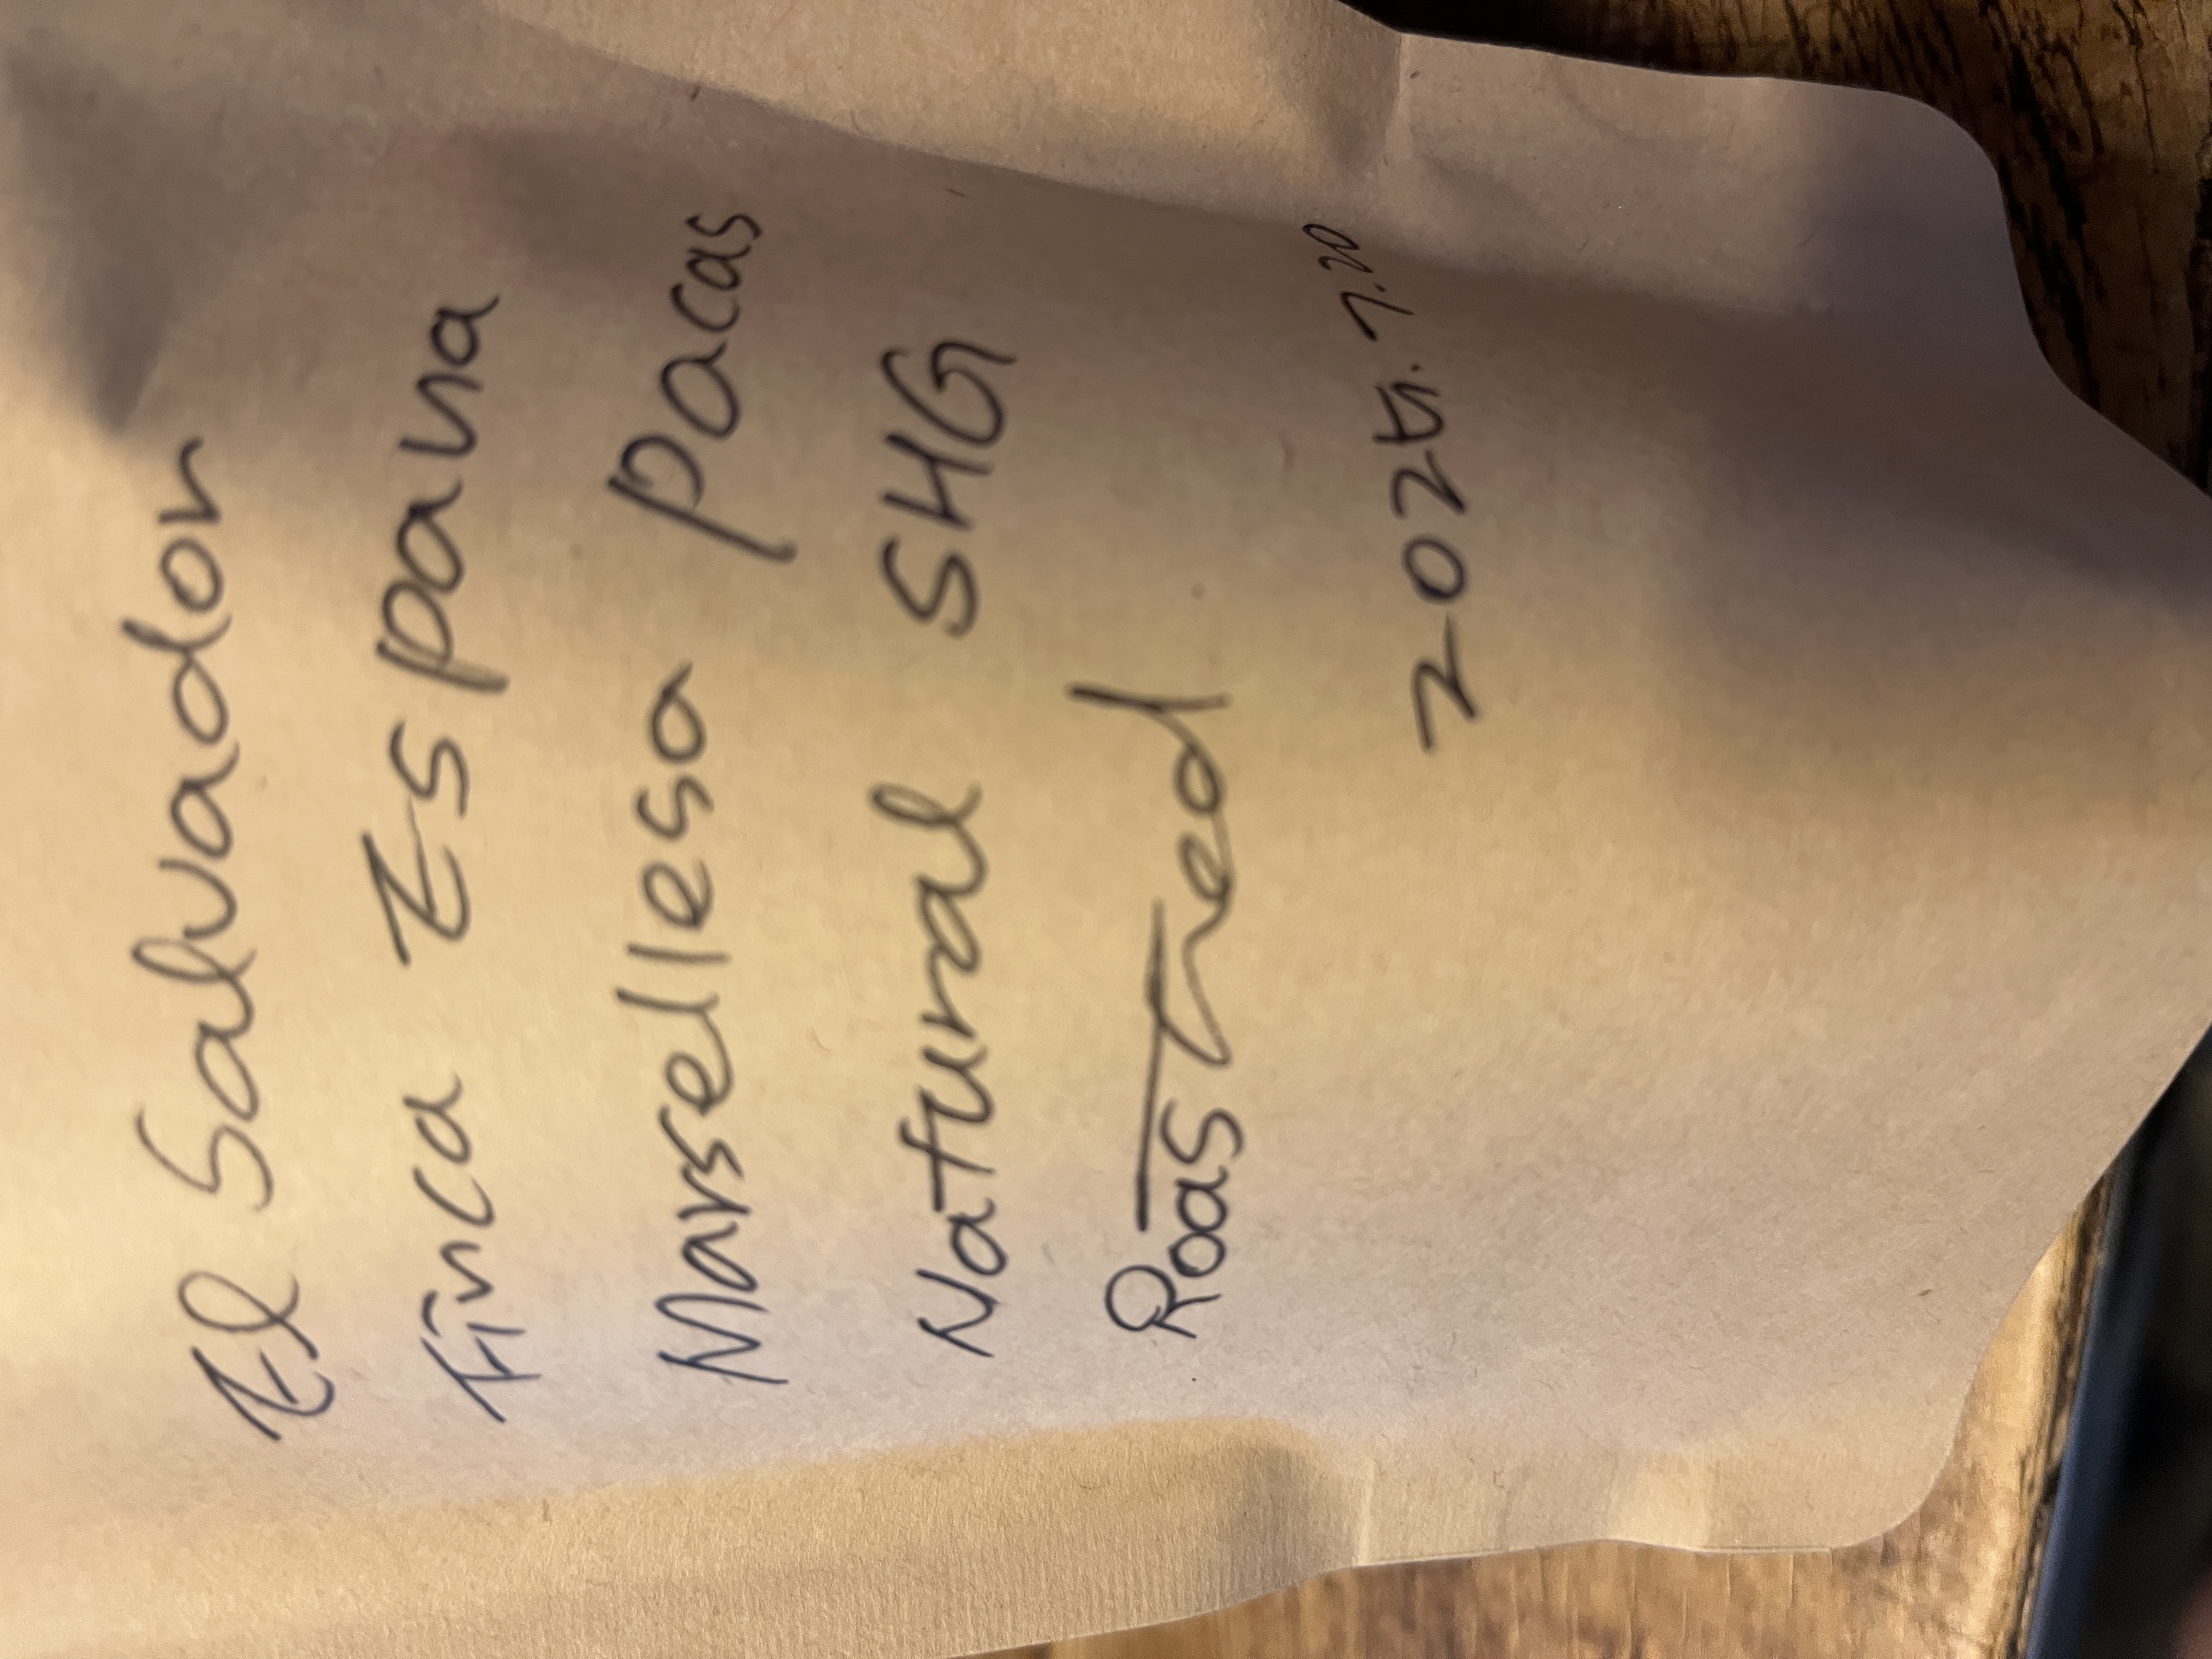 El Salvador
Finca Espana
Marselleso pacas
Natural SHG
Roasted
2024.7.20